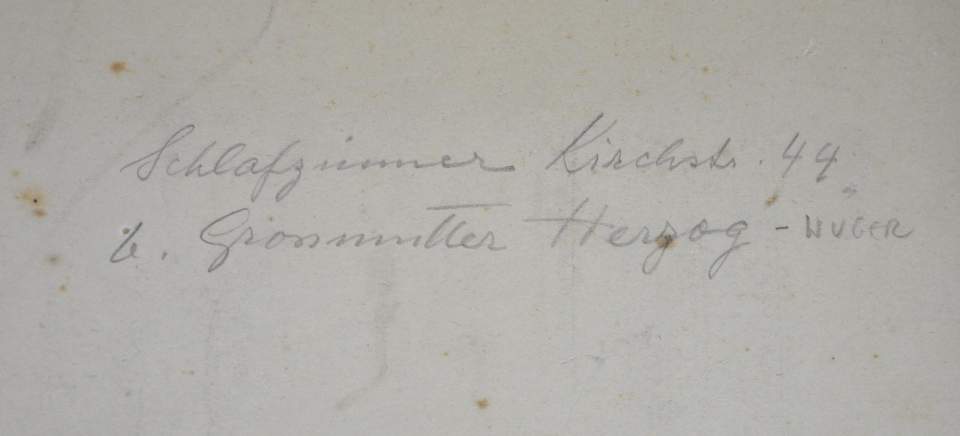 Schlafzimmer Kirchstr. 44
b. Grossmutter Herzog - HUGER